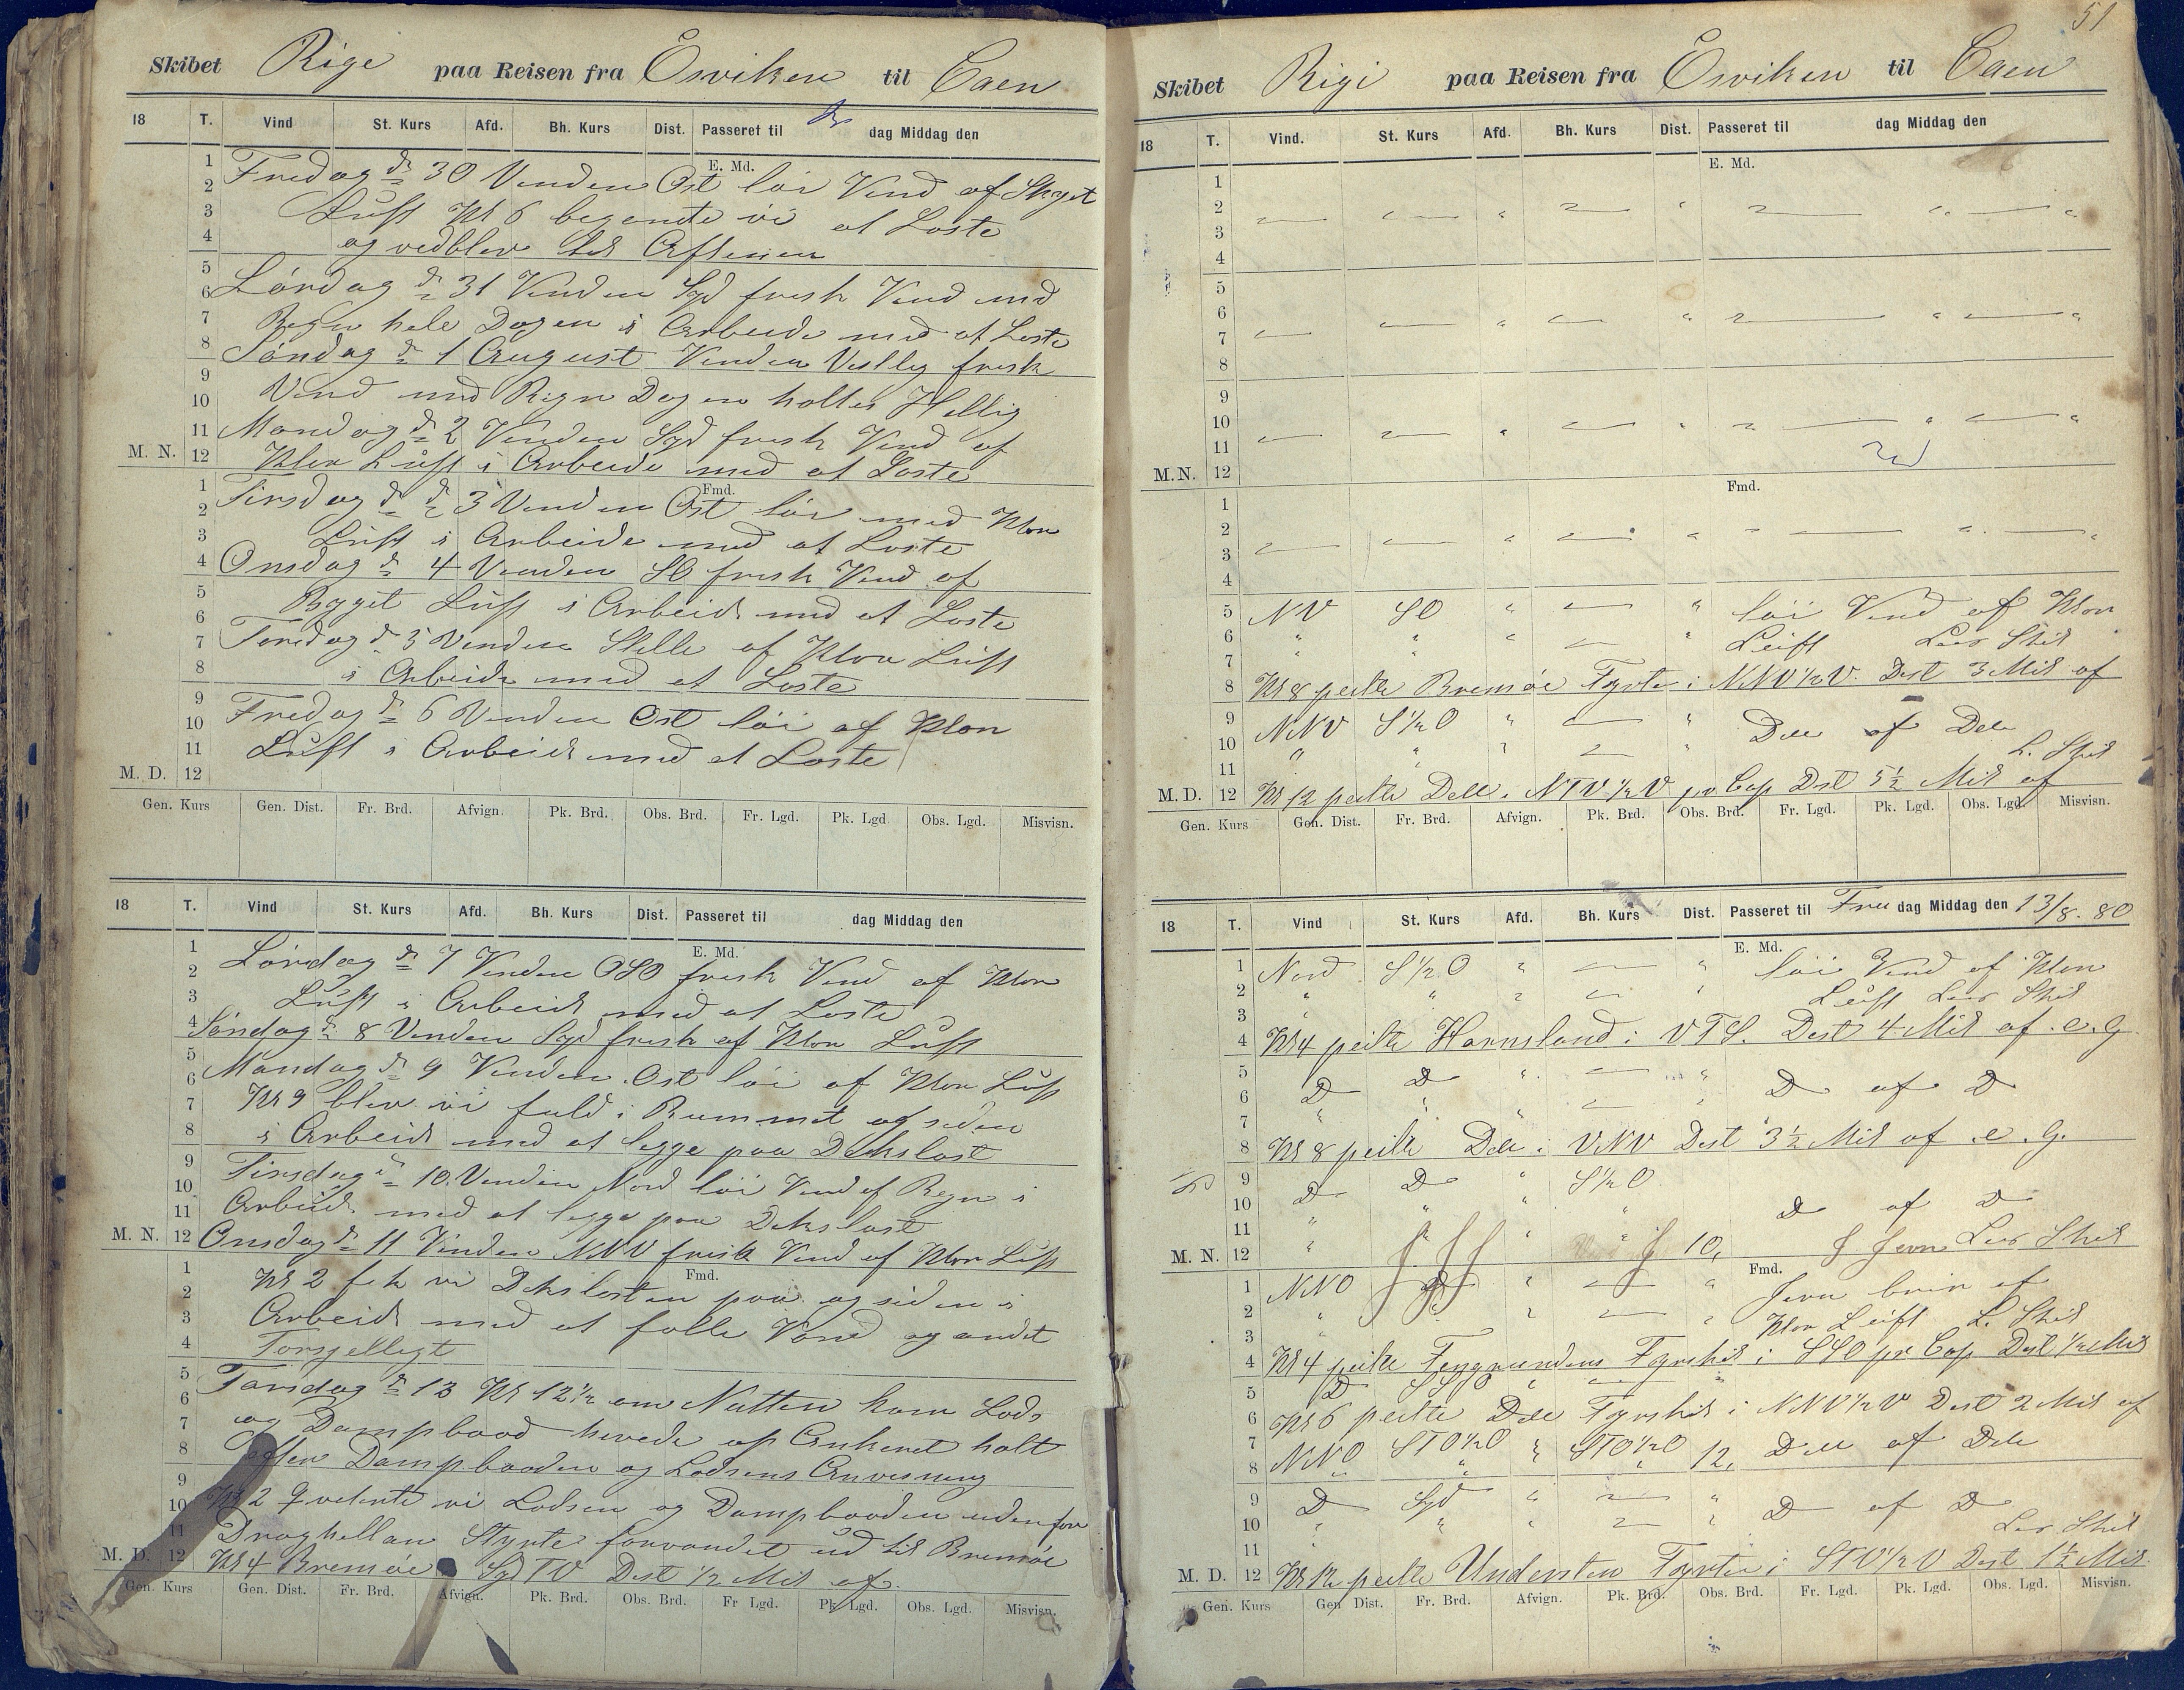 Skibet Rige paa Reisen fra Ösviken til Caen
18 T. Vind St. Kurs Afd. Bh. Kurs Dist. Passeret til dag Middag den
E. Md.
1 Fredag dn 30 Vinden Ost löi Vind af Skyet
2
3 Luft Kl 6 begente vi at Laste
4 og vedblev til Aftenen
5
6 Lördag dn 31 Vinden Syd frisk Vind med
7 Regn hele Dagen i Arbeide med at Laste
8 Söndag dn 1 August Vinden Vestlig frisk
9
10 Vind med Regn Dagen holtes Hellig
11 Mandag dn 2 Vinden Syd frisk Vind af
M. N. 12 Klar Luft i Arbeide med at Laste
Fmd.
1 Tirsdag d dn 3 Vinden Ost löi med Klar
2
3 Luft i Arbeide med at Laste
4 Onsdag dn 4 Vinden SO frisk Vind af
5
6 Byget Luft i Arbeide med at Laste
7 Torsdag dn 5 Vinden Stille af Klar Luft
8 i Arbeide med at Laste
9
10 Fredag dn 6 Vinden Ost löi af Klar
11 Luft i Arbeide med at Laste
M. D. 12
Gen. Kurs Gen. Dist. Fr. Brd. Afvign. Pk. Brd. Obs. Brd. Fr. Lgd. Pk. Lgd. Obs. Lgd. Misvisn.
18 T. Vind St. Kurs Afd. Bh. Kurs Dist. Passeret til dag Middag den
E. Md.
1 Lördag dn 7 Vinden OSO frisk Vind af Klar
2
3 Luft i Arbeide med at Laste
4 Söndag dn 8 Vinden Syd frisk af Klar Luft
5
6 Mandag dn 9 Vinden Ost löi af Klar Luft
7 Kl 9 blev vi fuld i Rummet og siden
8 i Arbeide med at legge paa Dekslast
9
10 Tirsdag dn 10 Vinden Nord löi Vind af Regn i
11 Arbeide med at legge paa Dekslast
M. N. 12 Onsdag dn 11 Vinden NNV frisk Vind af Klar Luft
Fmd.
1
2 Kl 2 fik vi Dekslasten paa og siden i
3 Arbeide med at folle Vand og andet
4 Forsjelligt
5
6 Torsdag dn 12 Kl 12½ om Natten kom Lods
7 og Dampbaad hevede op Ankeret holt
8 efter Dampbaaden og Lodsens Anvisning
9
10 Kl 2 qveterte vi Lodsen og Dampbaaden uden for
11 Draghellan Styrte forvandet ud til Bremöe
M. D. 12 Kl 4 Bremöe Syd TV Dist ½ Mil af
Gen. Kurs Gen. Dist. Fr. Brd. Afvign. Pk. Brd. Obs. Brd. Fr Lgd. Pk. Lgd. Obs. Lgd. Misvisn.
51
Skibet Rigi paa Reisen fra Ösviken til Caen
18 T. Vind. St. Kurs Afd. Bh. Kurs Dist. Passeret til dag Middag den
E. Md.
1
2
3
4
5
6
7
8
9
10
11
M. N. 12
Fmd.
1
2
3
4
5 NV SO " — " löi Vind af Klar
6 " " " — " Luft Lens Skib
7
8 Kl 8 peilte Bremöe Fyrte i NNV½V. Dist 3 Mil af
9 NNV S½O " — " Dele af Dele
10 " " " L. Skib
11
M. D. 12 Kl 12 peilte Dele i NTV½V pr Cop Dist 5½ Mil af
Gen. Kurs Gen. Dist. Fr. Brd. Afvign. Pk. Brd. Obs. Brd. Fr. Lgd. Pk. Lgd. Obs. Lgd. Misvisn.
18 T. Vind St. Kurs Afd. Bh. Kurs Dist. Passeret til Fre dag Middag den 13/8. 80
E. Md.
1 Nord S½O " — " löi Vind af Klar
2 " " " Luft Lens Skib
3
4 Kl 4 peilte Hornsland i VTS. Dist 4 Mil af .e.G
5 D D " — " D af D
6
7
8 Kl 8 peilte Dele i VNV Dist 3½ Mil af .e.G.
9 D D " S½O
10 D af D
11
M. N. 12 10, Jevn Lens Skib
Fmd.
1 NNO D " — " Jevn brin af
2 Klar Luft L. Skib
3
4 Kl 4 peilte Fingrundens Fyrskib i SSO pr Cop Dist ½ Mil
5 D SSO
6 Kl 6 peilte Dele Fyrskib i NNV½V Dist 2 Mil af
7 NNO STO½O " STO½O 12, Dele af Dele
8
9 D Syd " — " D af D
10 Lens Skib
11
M. D. 12 Kl 12 peilte Understen Fyrten i STV½V Dist 1½ Mil
Gen. Kurs Gen Dist. Fr. Brd. Afvign. Pk. Brd. Obs. Brd. Fr. Lgd. Pk. Lgd. Obs. Lgd. Misvisn.